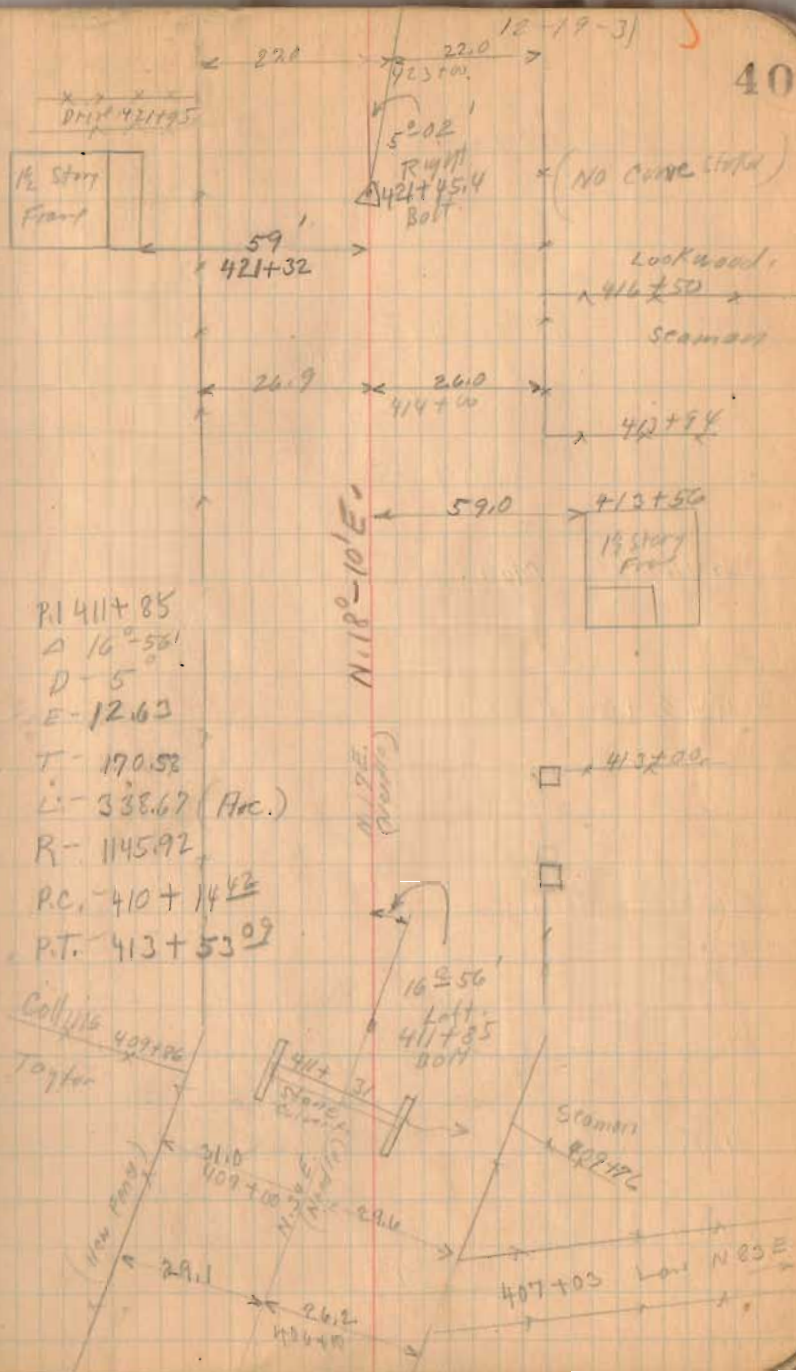 12-19-31
40
22.0 22.0
423+00
Drive 421+95
5°-02'
Right
421+45.4
Bolt
1½ Story
Frame
(No Curve Staked)
59'
421+32
Lockwood
416+50
Seaman
26.9 26.0
414+00
413+94
59.0 413+56
1½ Story
Fra
N.18°-10'E.
P.I 411+85
Δ 16°-56'
D - 5°
E - 12.63
T - 170.58
L - 338.67 (Arc.)
R - 1145.92
P.C. - 410 + 14 42
P.T. - 413 + 53 09
N.17E.
(Needle)
413+00
16°56'
Left
411+85
Bolt
Collins
409+86
Taylor
411+31
Stone
Seaman
409+76
31.0
409+00
29.6
N.34E.
(Needle)
(New Fence)
29.1
26.2
407+03 Lane N 83 E